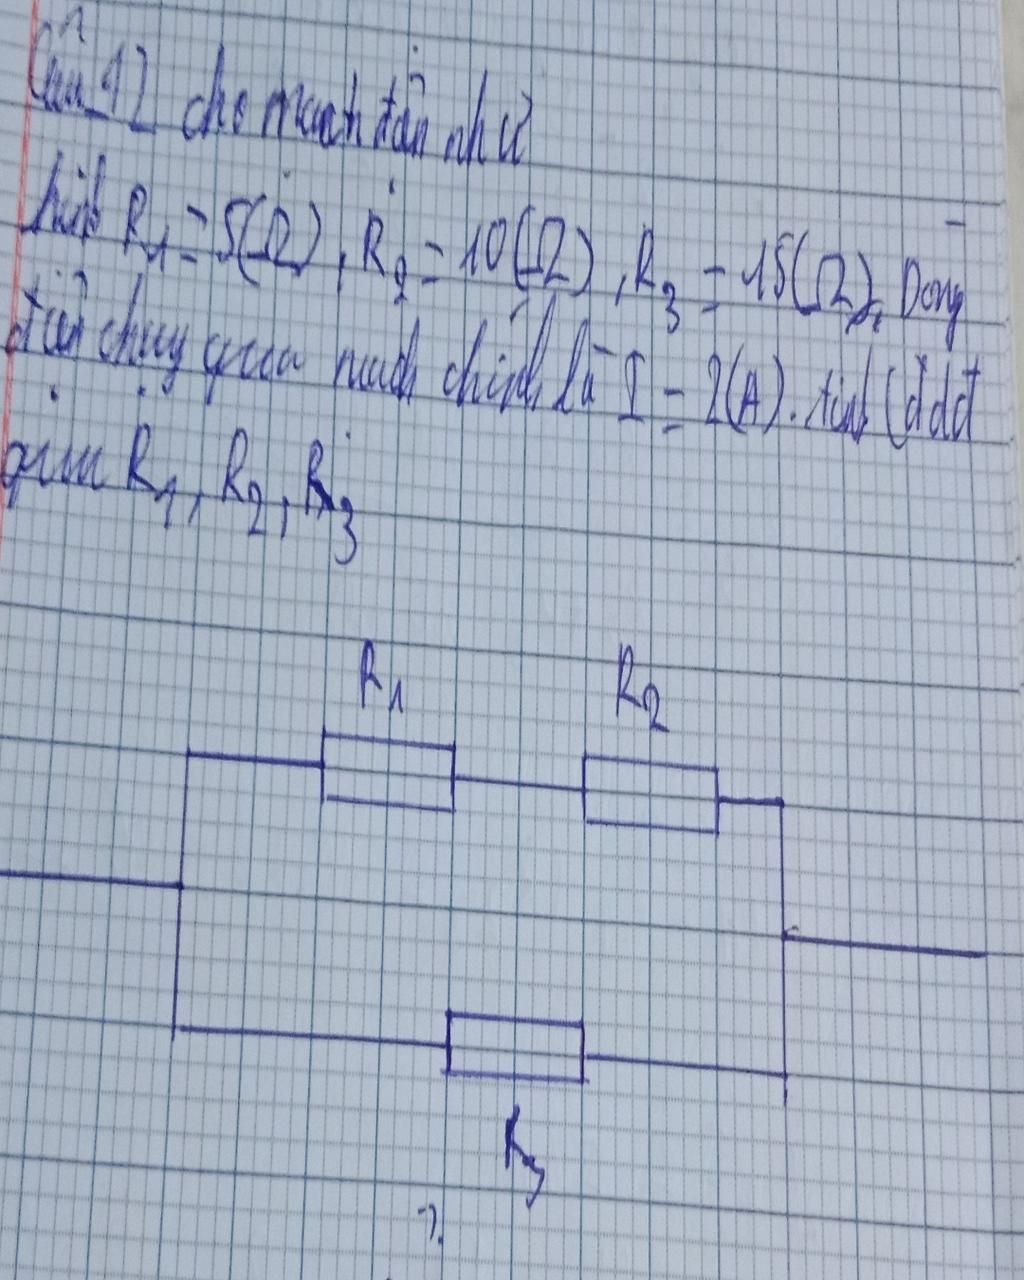 Câu 12 cho mạch điện như
hình R₁ = 5(Ω), R₂ = 10(Ω), R₃ = 15(Ω), Dòng
điện chạy qua mạch chính là I = 2(A). tính Cđdđ
qua R₁, R₂, R₃
R₁
R₂
R₃